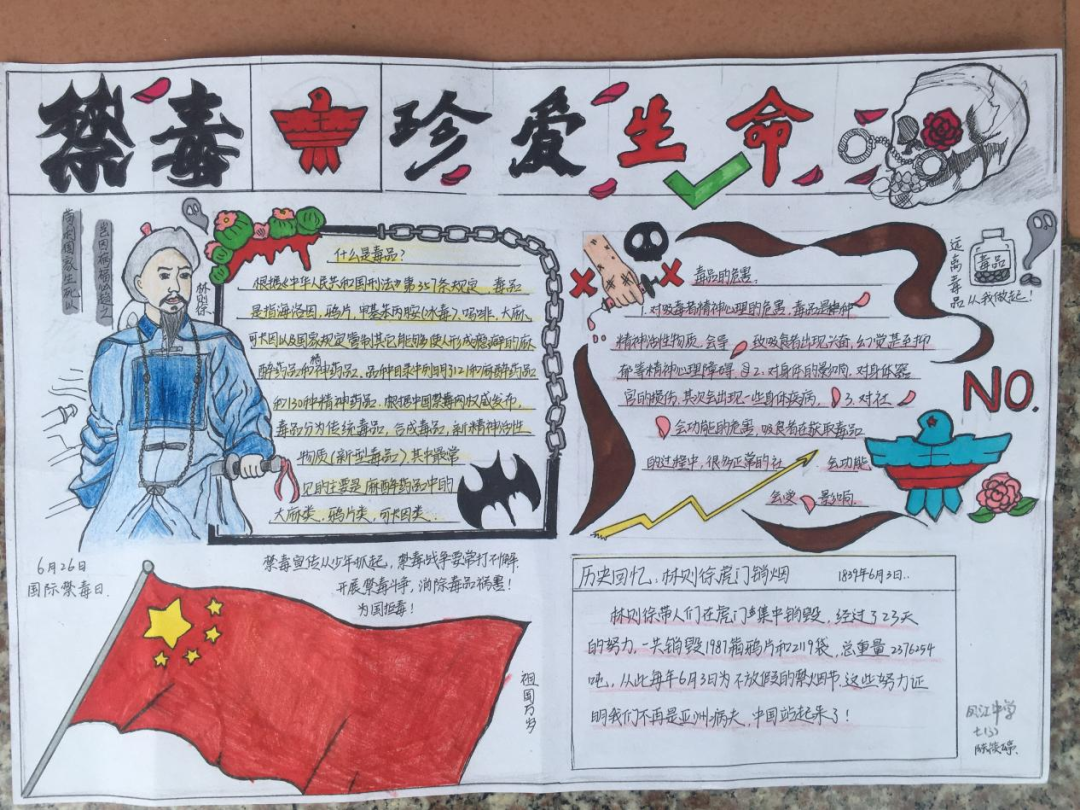 禁毒 珍爱生命
苟利国家生死以
岂因祸福避趋之
林则徐
什么是毒品?
根据《中华人民共和国刑法》第357条规定,毒品
是指海洛因、鸦片、甲基苯丙胺(冰毒)、吗啡、大麻、
可卡因以及国家规定管制其它能够使人形成瘾癖的麻
醉药品和精神药品,品种目录中列明了121种麻醉药品
和130种精神药品。根据中国禁毒网权威发布,
毒品分为传统毒品,合成毒品,新精神活性
物质(新型毒品)其中最常
见的主要是麻醉药品中的
大麻类,鸦片类,可卡因类.
毒品的危害,
1.对吸毒者精神心理的危害,毒品是精神
精神活性物质,会导 致吸食者出现兴奋,幻觉甚至抑
郁等精神心理障碍 2.对身体的影响,对身体器
官的损伤,其次会出现一些身体疾病, 3.对社
会功能的危害,吸食者在获取毒品
的过程中,很多正常的社 会功能
会受 影响.
远离毒品
毒品
从我做起!
NO.
6月26日
国际禁毒日.
禁毒宣传从少年抓起,禁毒战争要常打不懈.
开展禁毒斗争,消除毒品祸害!
为国拒毒!
祖国万岁
历史回忆:林则徐虎门销烟 1839年6月3日..
林则徐带人们在虎门集中销毁,经过了23天
的努力,一共销毁1987箱鸦片和2119袋,总重量2376254
吨,从此每年6月3日为不放假的禁烟节.这些努力证
明我们不再是亚洲病夫,中国站起来了!
凤江中学